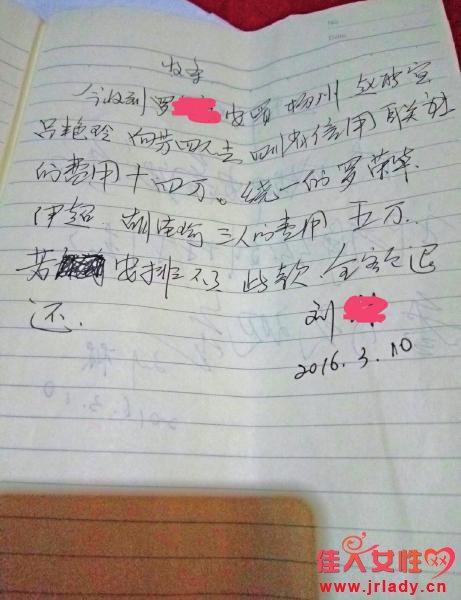 No
Date
收条
今收到罗 安置 杨州 赵
吕艳玲 向芳四人去四川农信用联社
的费用十四万。统一的罗荣华
伊超 胡 三人的费用 五万.
若 安排不了 此款 全 退
还.
刘
2016.3.10
佳人女性网
www.jrlady.cn